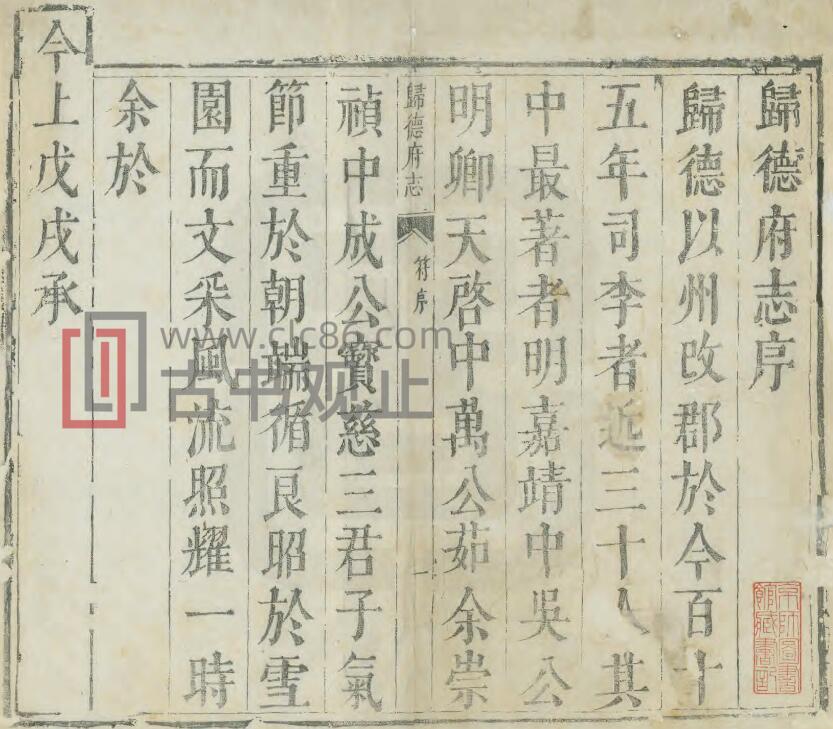 歸德府志序
歸德以州改郡於今百十
五年司李者近三十人其
中最著者明嘉靖中吳公
明卿天啓中萬公茹余崇
歸德府志 符序 一
禎中成公寶慈三君子氣
節重於朝端循良昭於雪
園而文采風流照耀一時
余於
今上戊戌承
www.clc86.com
古中观止